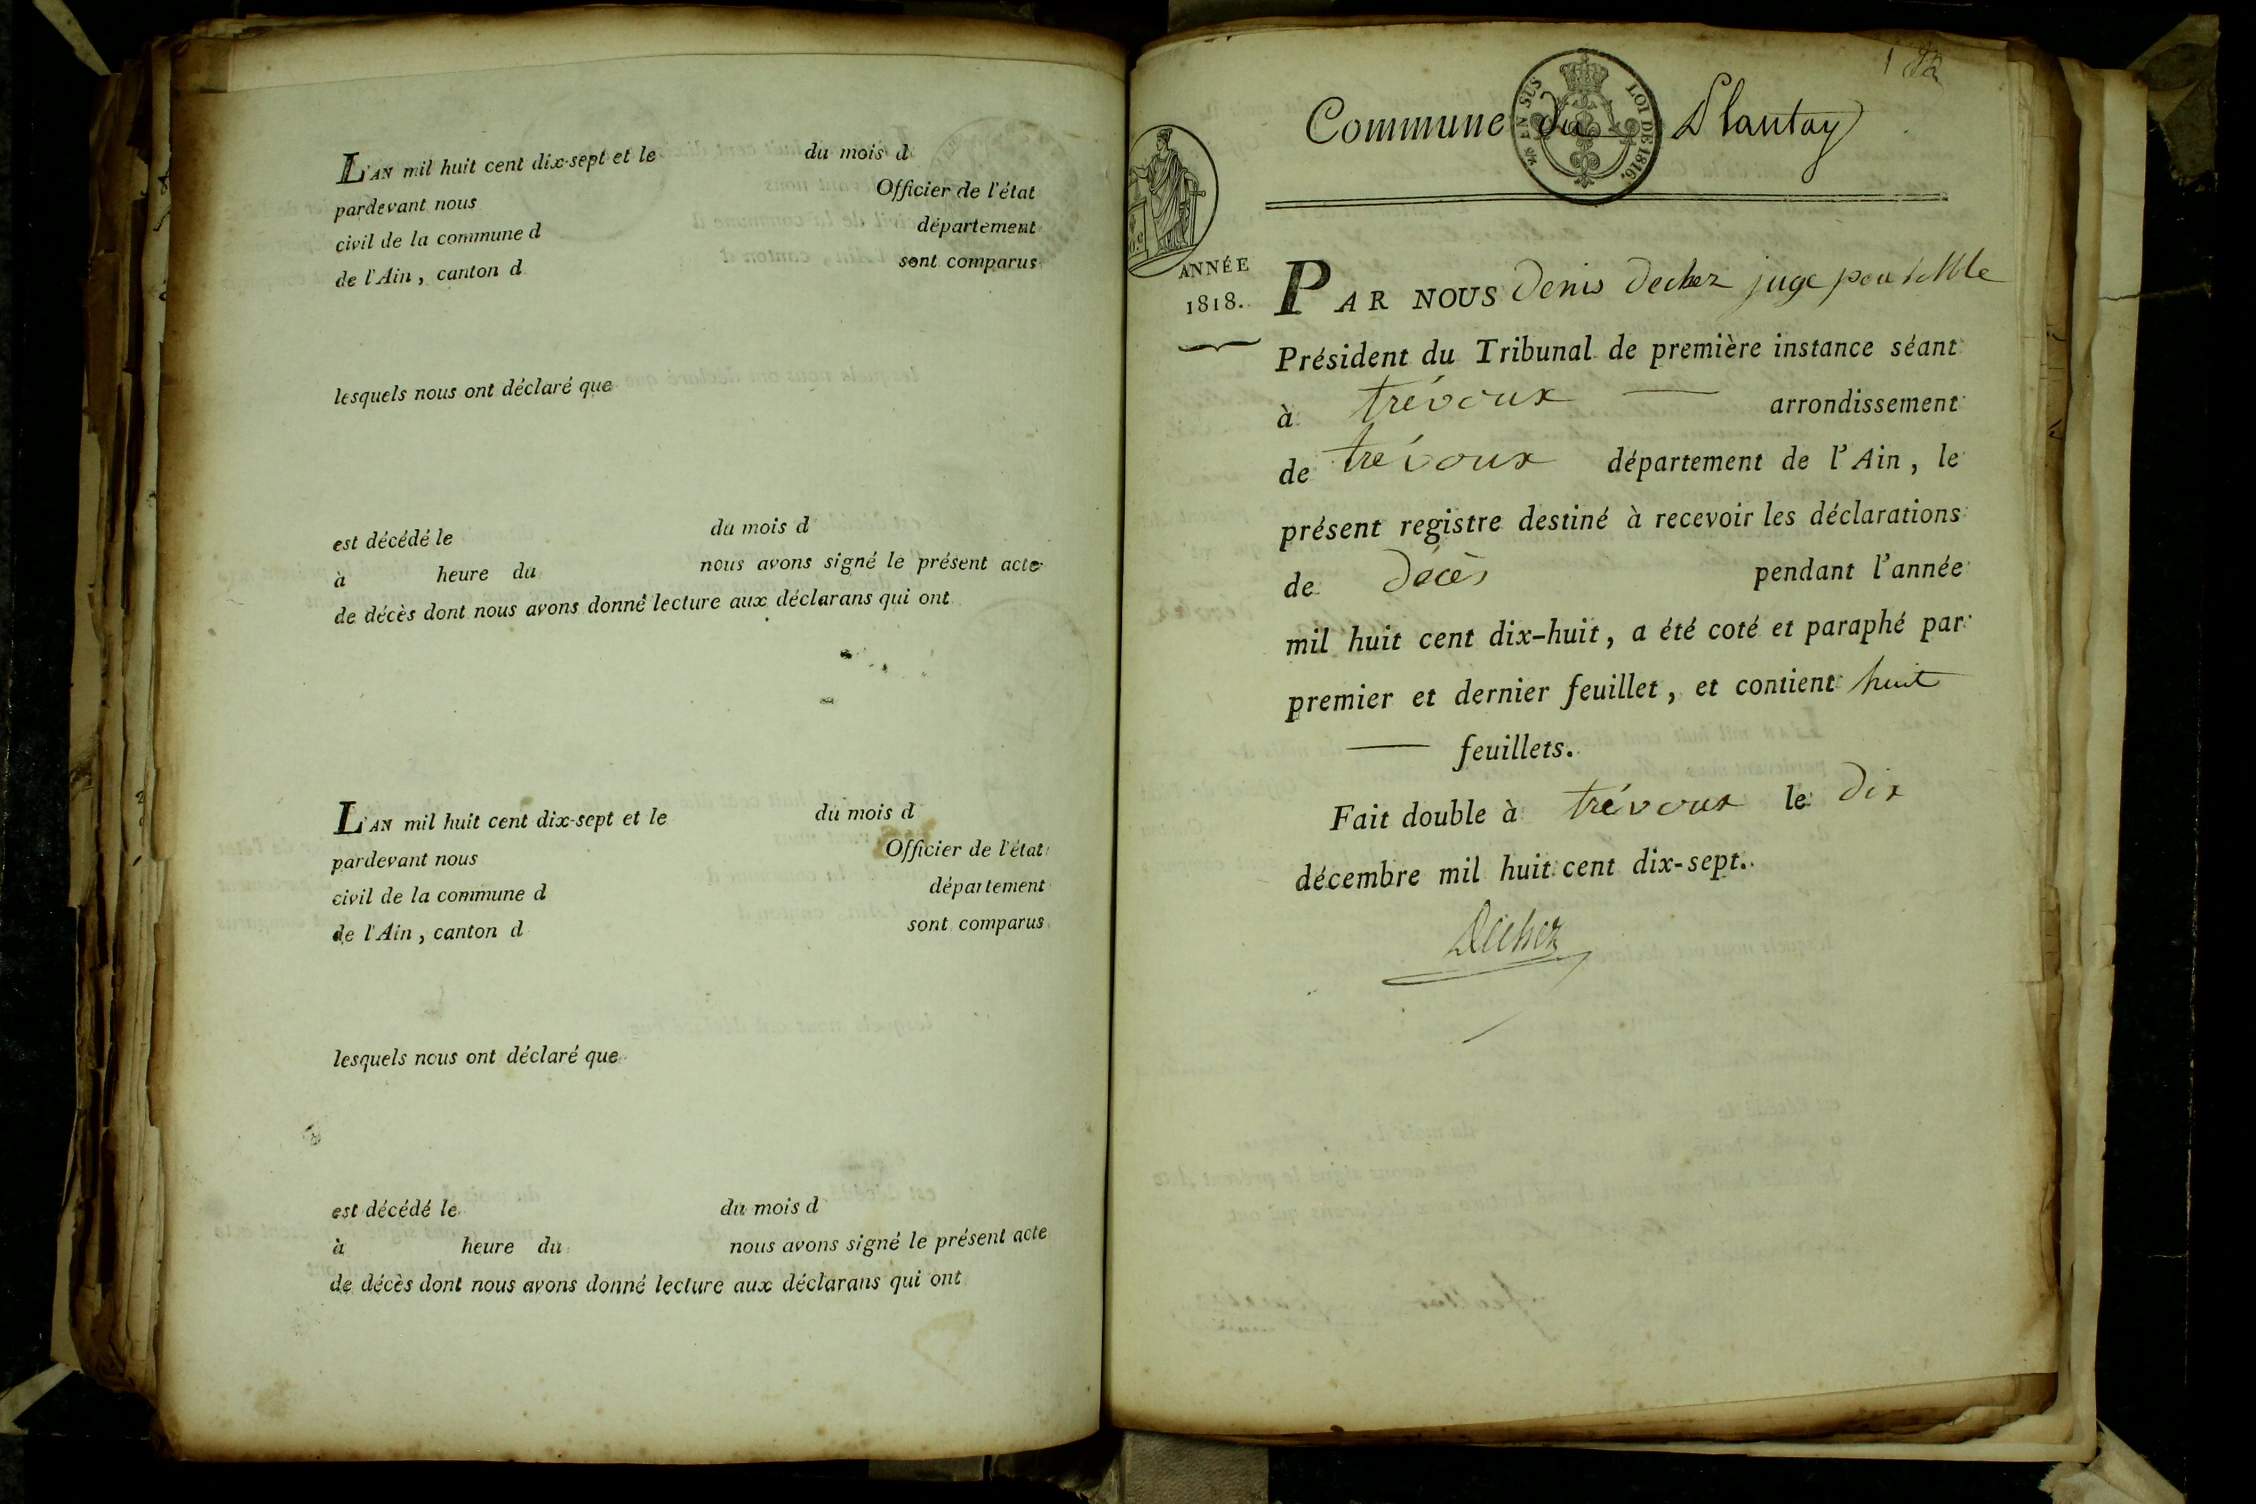 L'AN mil huit cent dix-sept et le du mois d
pardevant nous Officier de l'état
civil de la commune d département
de l'Ain, canton d sont comparus
lesquels nous ont déclaré que
est décédé le du mois d
à heure du nous avons signé le présent acte
de décès dont nous avons donné lecture aux déclarans qui ont
L'AN mil huit cent dix-sept et le du mois d
pardevant nous Officier de l'état
civil de la commune d département
de l'Ain, canton d sont comparus
lesquels nous ont déclaré que
est décédé le du mois d
à heure du nous avons signé le présent acte
de décès dont nous avons donné lecture aux déclarans qui ont
1
EN SUS LOI DE 1816.
Commune du Plantay
ANNÉE
1818.
PAR NOUS Denis Dechez juge pour le
Président du Tribunal de première instance séant
à trévoux arrondissement
de trévoux département de l'Ain, le
présent registre destiné à recevoir les déclarations
de décès pendant l'année
mil huit cent dix-huit, a été coté et paraphé par
premier et dernier feuillet, et contient huit
feuillets.
Fait double à trévoux le dix
décembre mil huit cent dix-sept.
Dechez